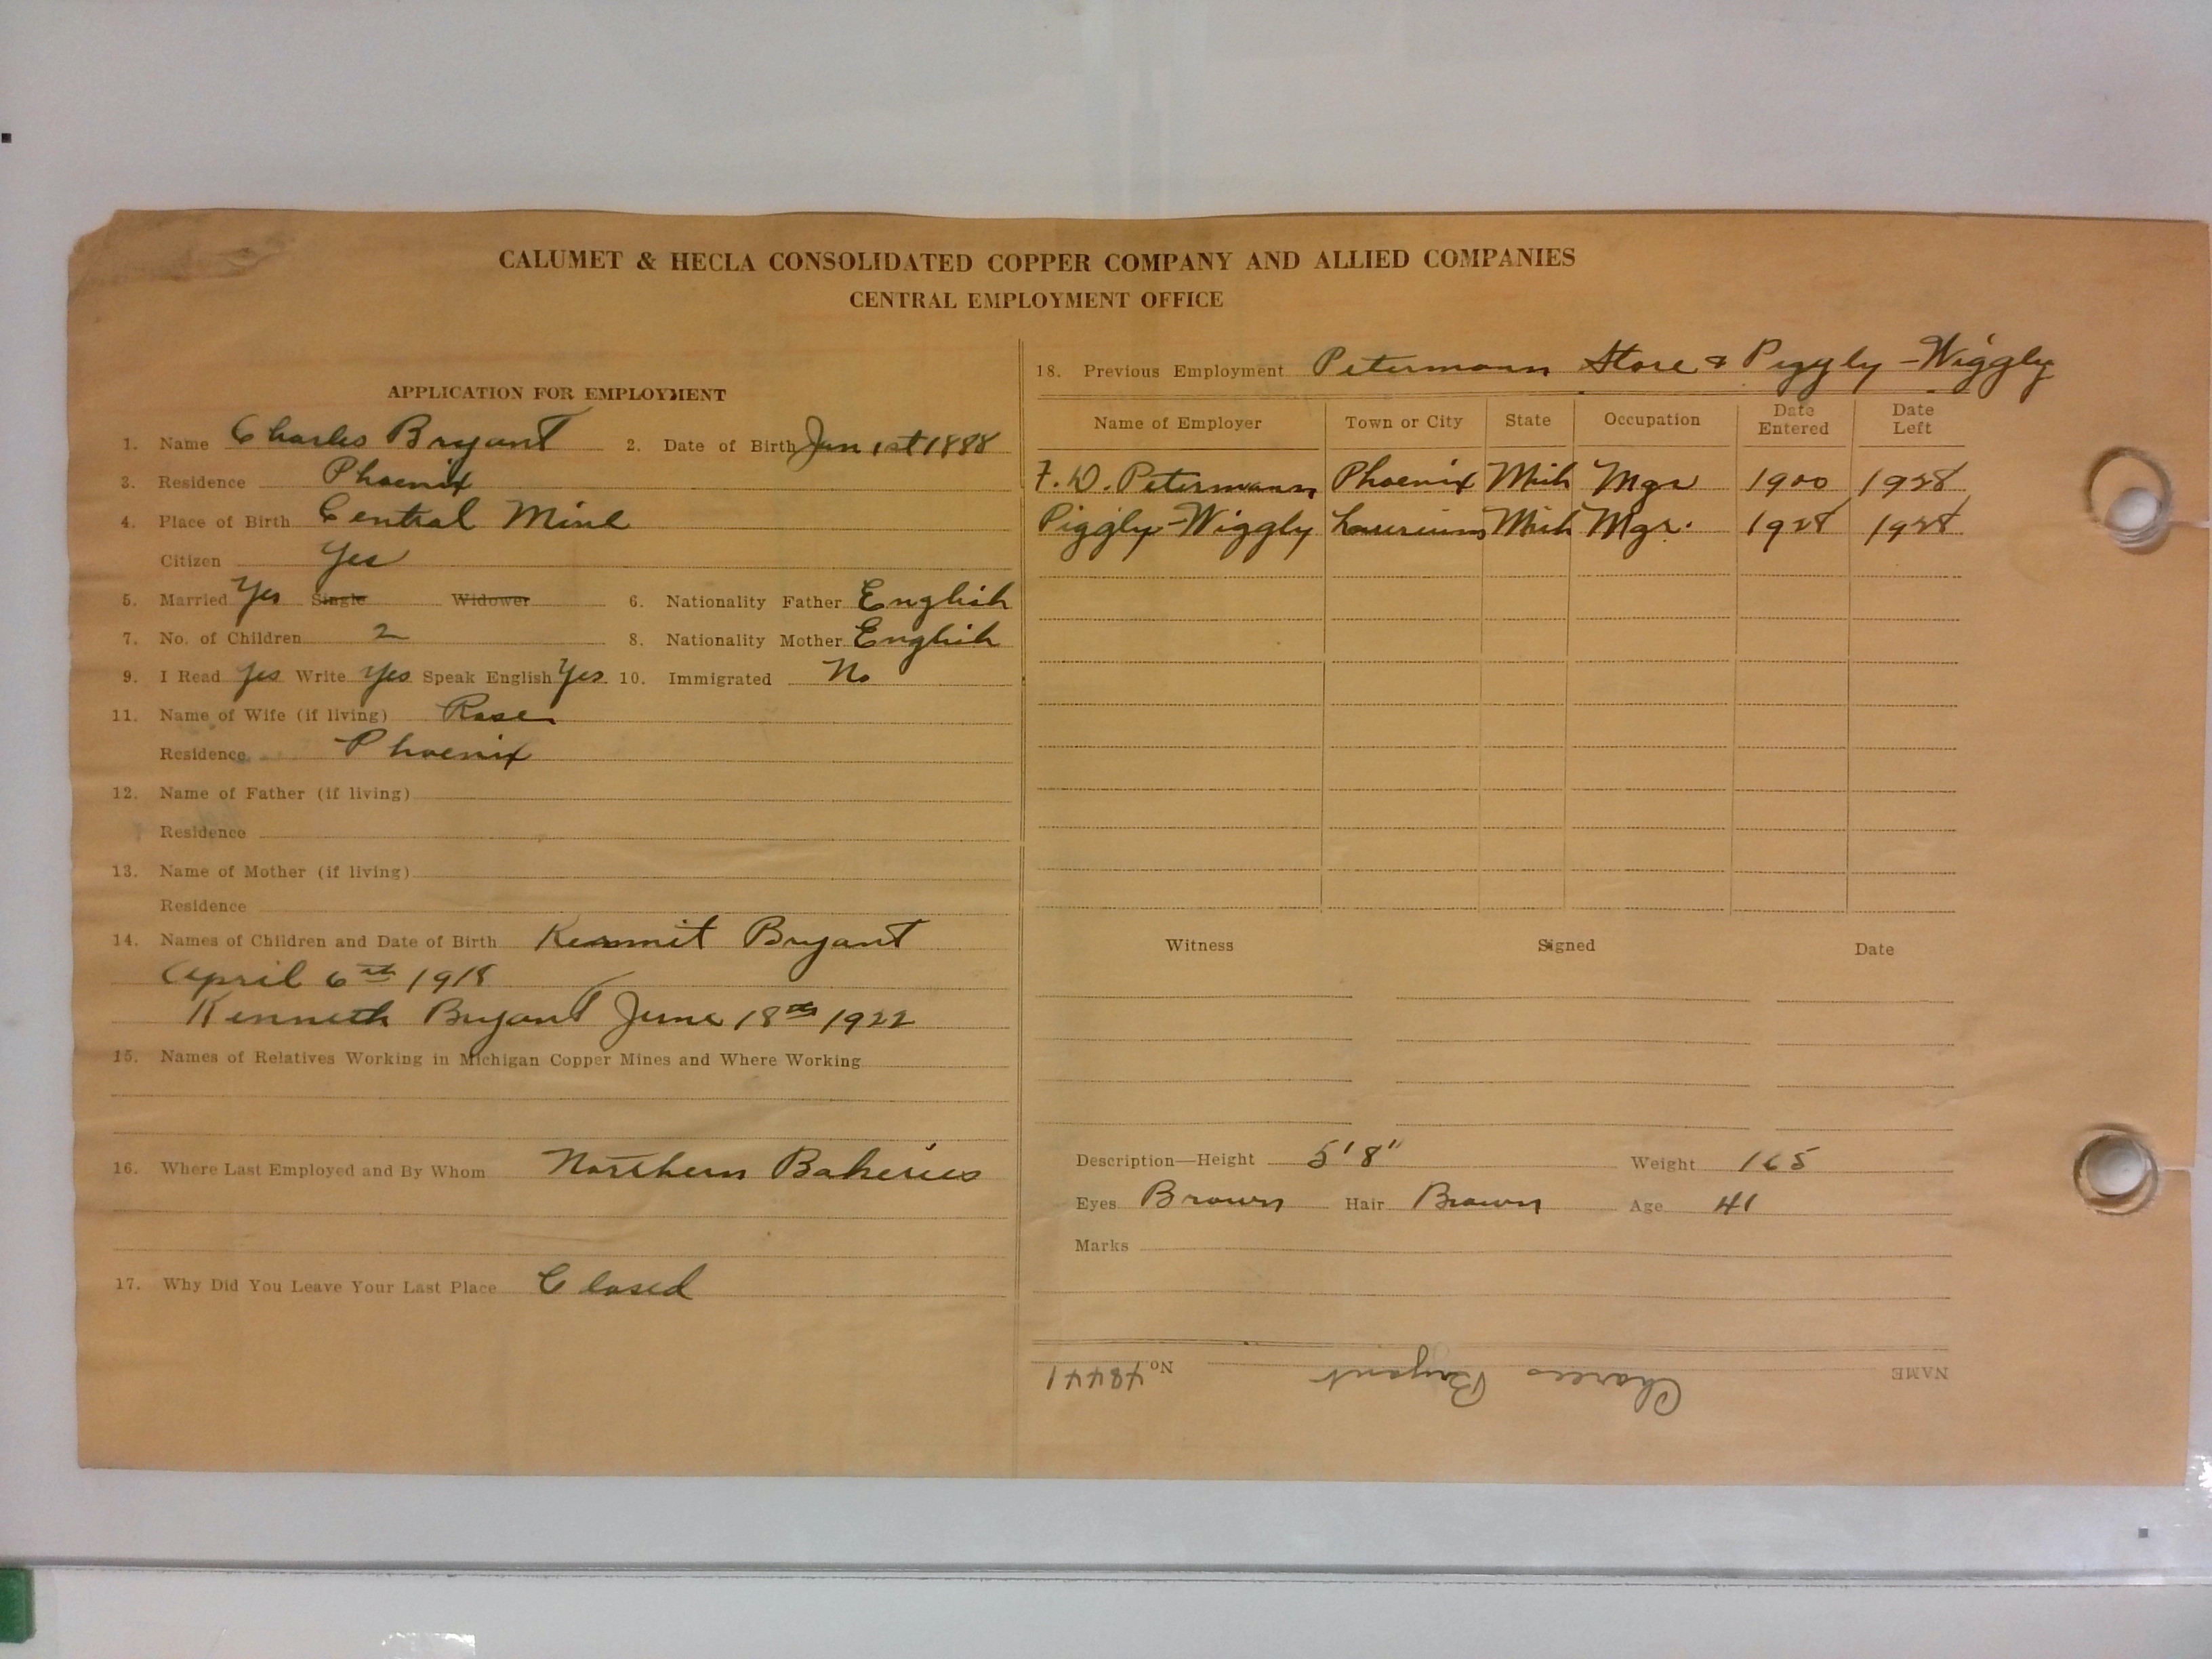 CALUMET & HECLA CONSOLIDATED COPPER COMPANY AND ALLIED COMPANIES
CENTRAL EMPLOYMENT OFFICE
APPLICATION FOR EMPLOYMENT
1. Name Charles Bryant 2. Date of Birth Jan 1st 1888
3. Residence Phoenix
4. Place of Birth Central Mine
Citizen Yes
5. Married Yes Single Widower 6. Nationality Father English
7. No. of Children 2 8. Nationality Mother English
9. I Read Yes Write Yes Speak English Yes 10. Immigrated No
11. Name of Wife (if living) Rose
Residence Phoenix
12. Name of Father (if living)
Residence
13. Name of Mother (if living)
Residence
14. Names of Children and Date of Birth Kermit Bryant
April 6th 1918
Kenneth Bryant June 18th 1922
15. Names of Relatives Working in Michigan Copper Mines and Where Working
16. Where Last Employed and By Whom Northern Bakeries
17. Why Did You Leave Your Last Place Closed
18. Previous Employment Petermann Store & Piggly-Wiggly
Name of Employer Town or City State Occupation Date Entered Date Left
F. D. Petermann Phoenix Mich Mgr 1900 1928
Piggly-Wiggly Laurium Mich Mgr. 1928 1928
Witness Signed Date
Description—Height 5'8" Weight 165
Eyes Brown Hair Brown Age 41
Marks
NAME Charles Bryant No. 48441